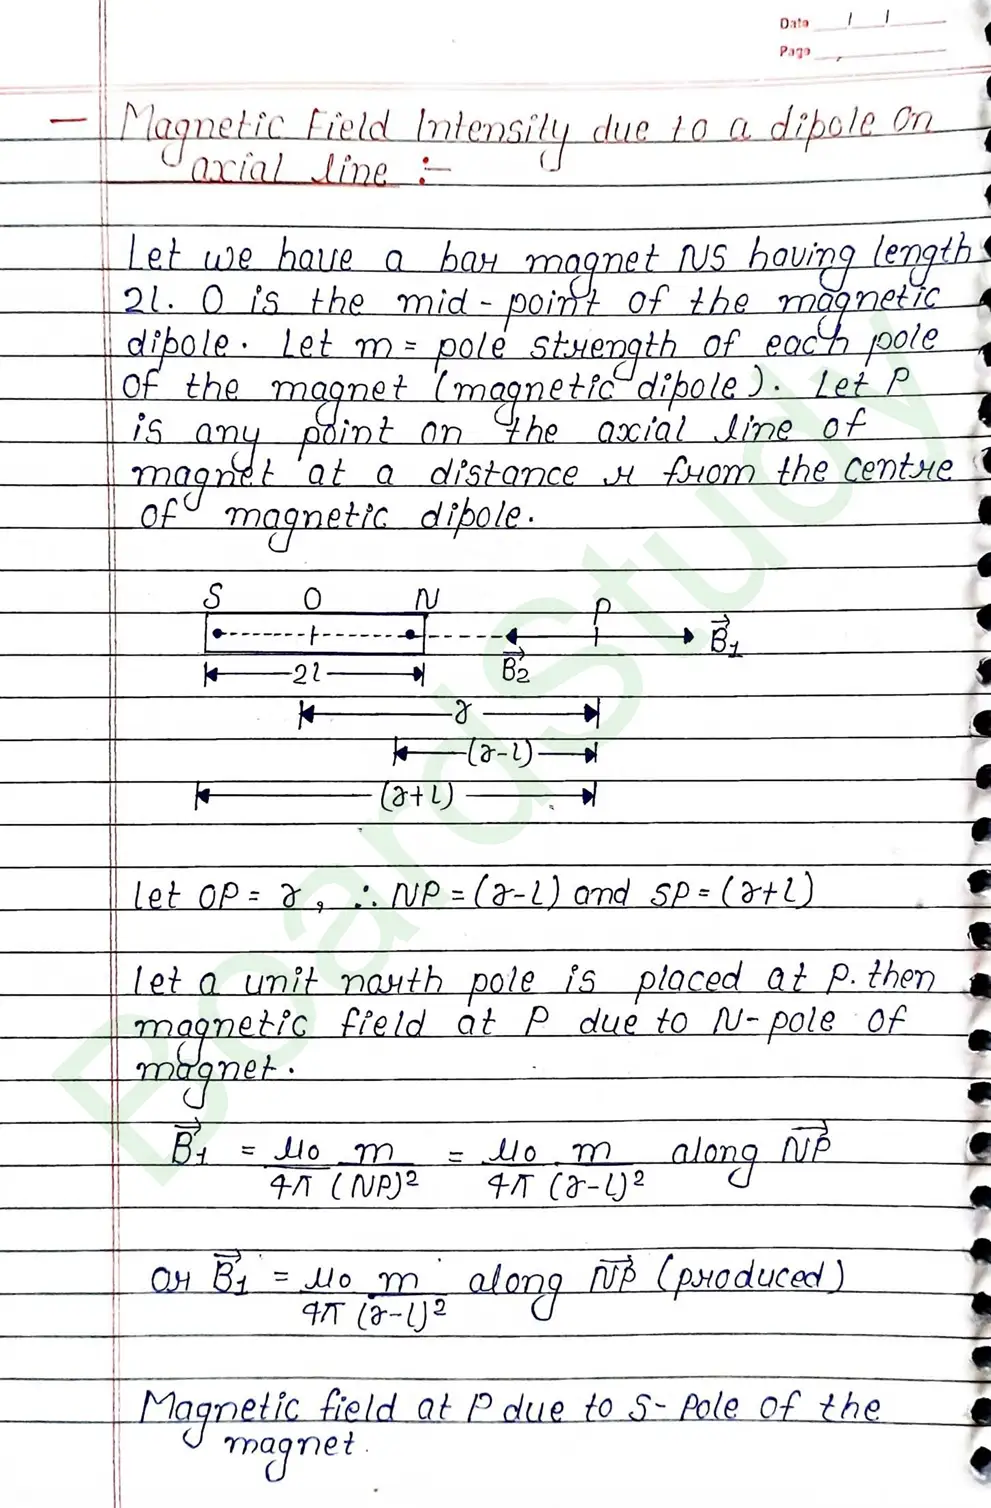 Date
Page
— Magnetic Field Intensity due to a dipole on
axial line :-
Let we have a bar magnet NS having length
2l. O is the mid-point of the magnetic
dipole. Let m = pole strength of each pole
of the magnet (magnetic dipole). Let P
is any point on the axial line of
magnet at a distance r from the centre
of magnetic dipole.
S O N P
B⃗₂ B⃗₁
2l
r
(r-l)
(r+l)
let OP = r, ∴ NP = (r-l) and SP = (r+l)
let a unit north pole is placed at P. then
magnetic field at P due to N-pole of
magnet.
B⃗₁ = μ₀/4π m/(NP)² = μ₀/4π m/(r-l)² along N⃗P⃗
or B⃗₁ = μ₀/4π m/(r-l)² along N⃗P⃗ (produced)
Magnetic field at P due to S-Pole of the
magnet.
BoardStudy